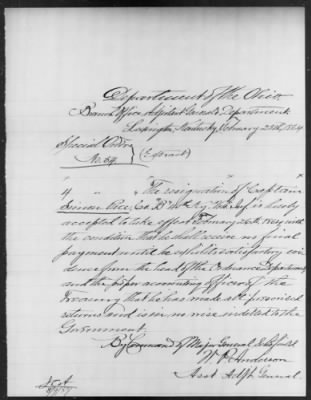 Department of the Ohio
Branch Office Adjutant General's Department
Lexington Kentucky February 25th 1864
Special Orders
No. 54. (Extract)
4 " " "The resignation of Captain
Price, Co. "B" Ky. Vol. Inf. is hereby
accepted to take effect February 26th 1864 with
the condition that he shall receive no final
payment until he exhibits satisfactory evi
dence from the head of the Ordnance Department
and the proper accounting officers of the
Treasury that he has made all prescribed
returns and is in no wise indebted to the
Government.
By Command of Major General Schofield
W. P. Anderson
Asst Adjt General.